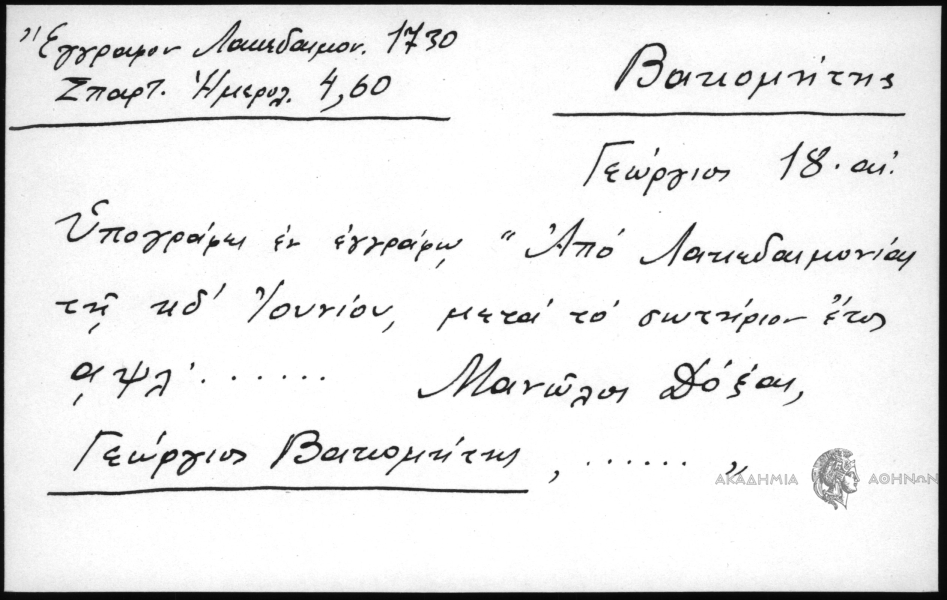 "Έγγραφον Λακεδαιμον. 1730
Σπαρτ. Ἡμερολ. 4,60
Βατιομήτης
Γεώργιος 18. αἰ.
Ὑπογράφει ἐν ἐγγράφῳ "Ἀπό Λακεδαιμονίας
τῇ κδ' Ἰουνίου, μετά τό σωτήριον ἔτος
͵αψλ'. . . . . . . Μανῶλος Δόξας,
Γεώργιος Βατιομήτης , . . . . . . "
ΑΚΑΔΗΜΙΑ ΑΘΗΝΩΝ